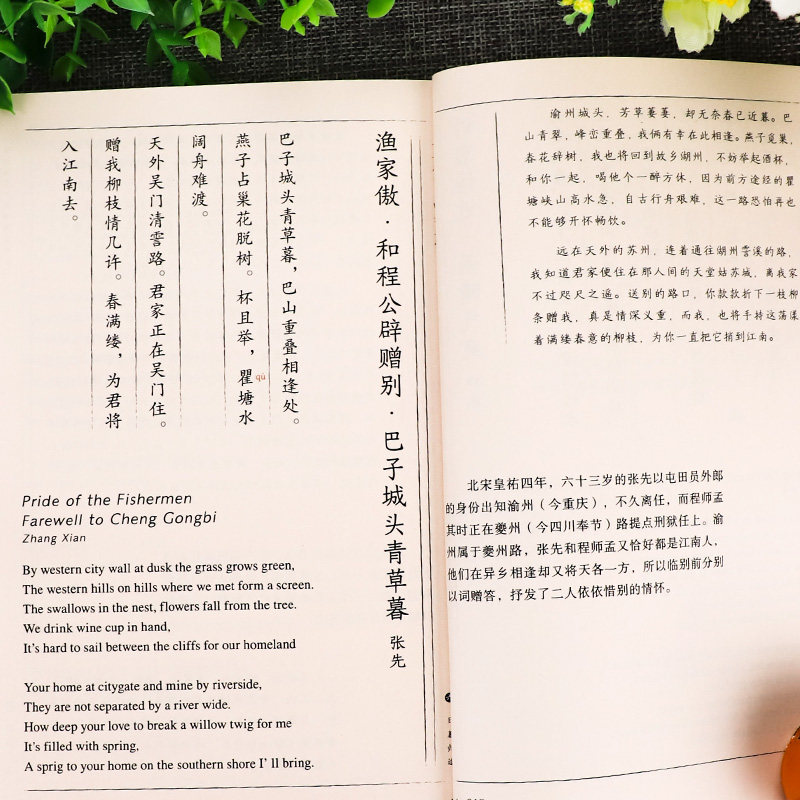 渔家傲·和程公辟赠别·巴子城头青草暮
张先
巴子城头青草暮，巴山重叠相逢处。
燕子占巢花脱树。杯且举，瞿塘水
qú
阔舟难渡。
天外吴门清霅路。君家正在吴门住。
赠我柳枝情几许。春满缕，为君将
入江南去。
Pride of the Fishermen
Farewell to Cheng Gongbi
Zhang Xian
By western city wall at dusk the grass grows green,
The western hills on hills where we met form a screen.
The swallows in the nest, flowers fall from the tree.
We drink wine cup in hand,
It's hard to sail between the cliffs for our homeland
Your home at citygate and mine by riverside,
They are not separated by a river wide.
How deep your love to break a willow twig for me
It's filled with spring,
A sprig to your home on the southern shore I' ll bring.
渝州城头，芳草萋萋，却无奈春已近暮。巴
山青翠，峰峦重叠，我俩有幸在此相逢。燕子觅巢，
春花辞树，我也将回到故乡湖州，不妨举起酒杯，
和你一起，喝他个一醉方休，因为前方途经的瞿
塘峡山高水急，自古行舟艰难，这一路恐怕再也
不能够开怀畅饮。
远在天外的苏州，连着通往湖州霅溪的路，
我知道君家便住在那人间的天堂姑苏城，离我家
不过咫尺之遥。送别的路口，你款款折下一枝柳
条赠我，真是情深义重，而我，也将手持这荡漾
着满缕春意的柳枝，为你一直把它捎到江南。
北宋皇祐四年，六十三岁的张先以屯田员外郎
的身份出知渝州（今重庆），不久离任，而程师孟
其时正在夔州（今四川奉节）路提点刑狱任上。渝
州属于夔州路，张先和程师孟又恰好都是江南人，
他们在异乡相逢却又将天各一方，所以临别前分别
以词赠答，抒发了二人依依惜别的情怀。